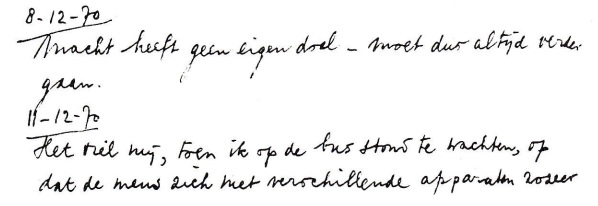 8-12-70
Macht heeft geen eigen doel - moet dus altijd verder
gaan.
11-12-70
Het viel mij, toen ik op de bus stond te wachten, op
dat de mens zich met verschillende apparaten zozeer